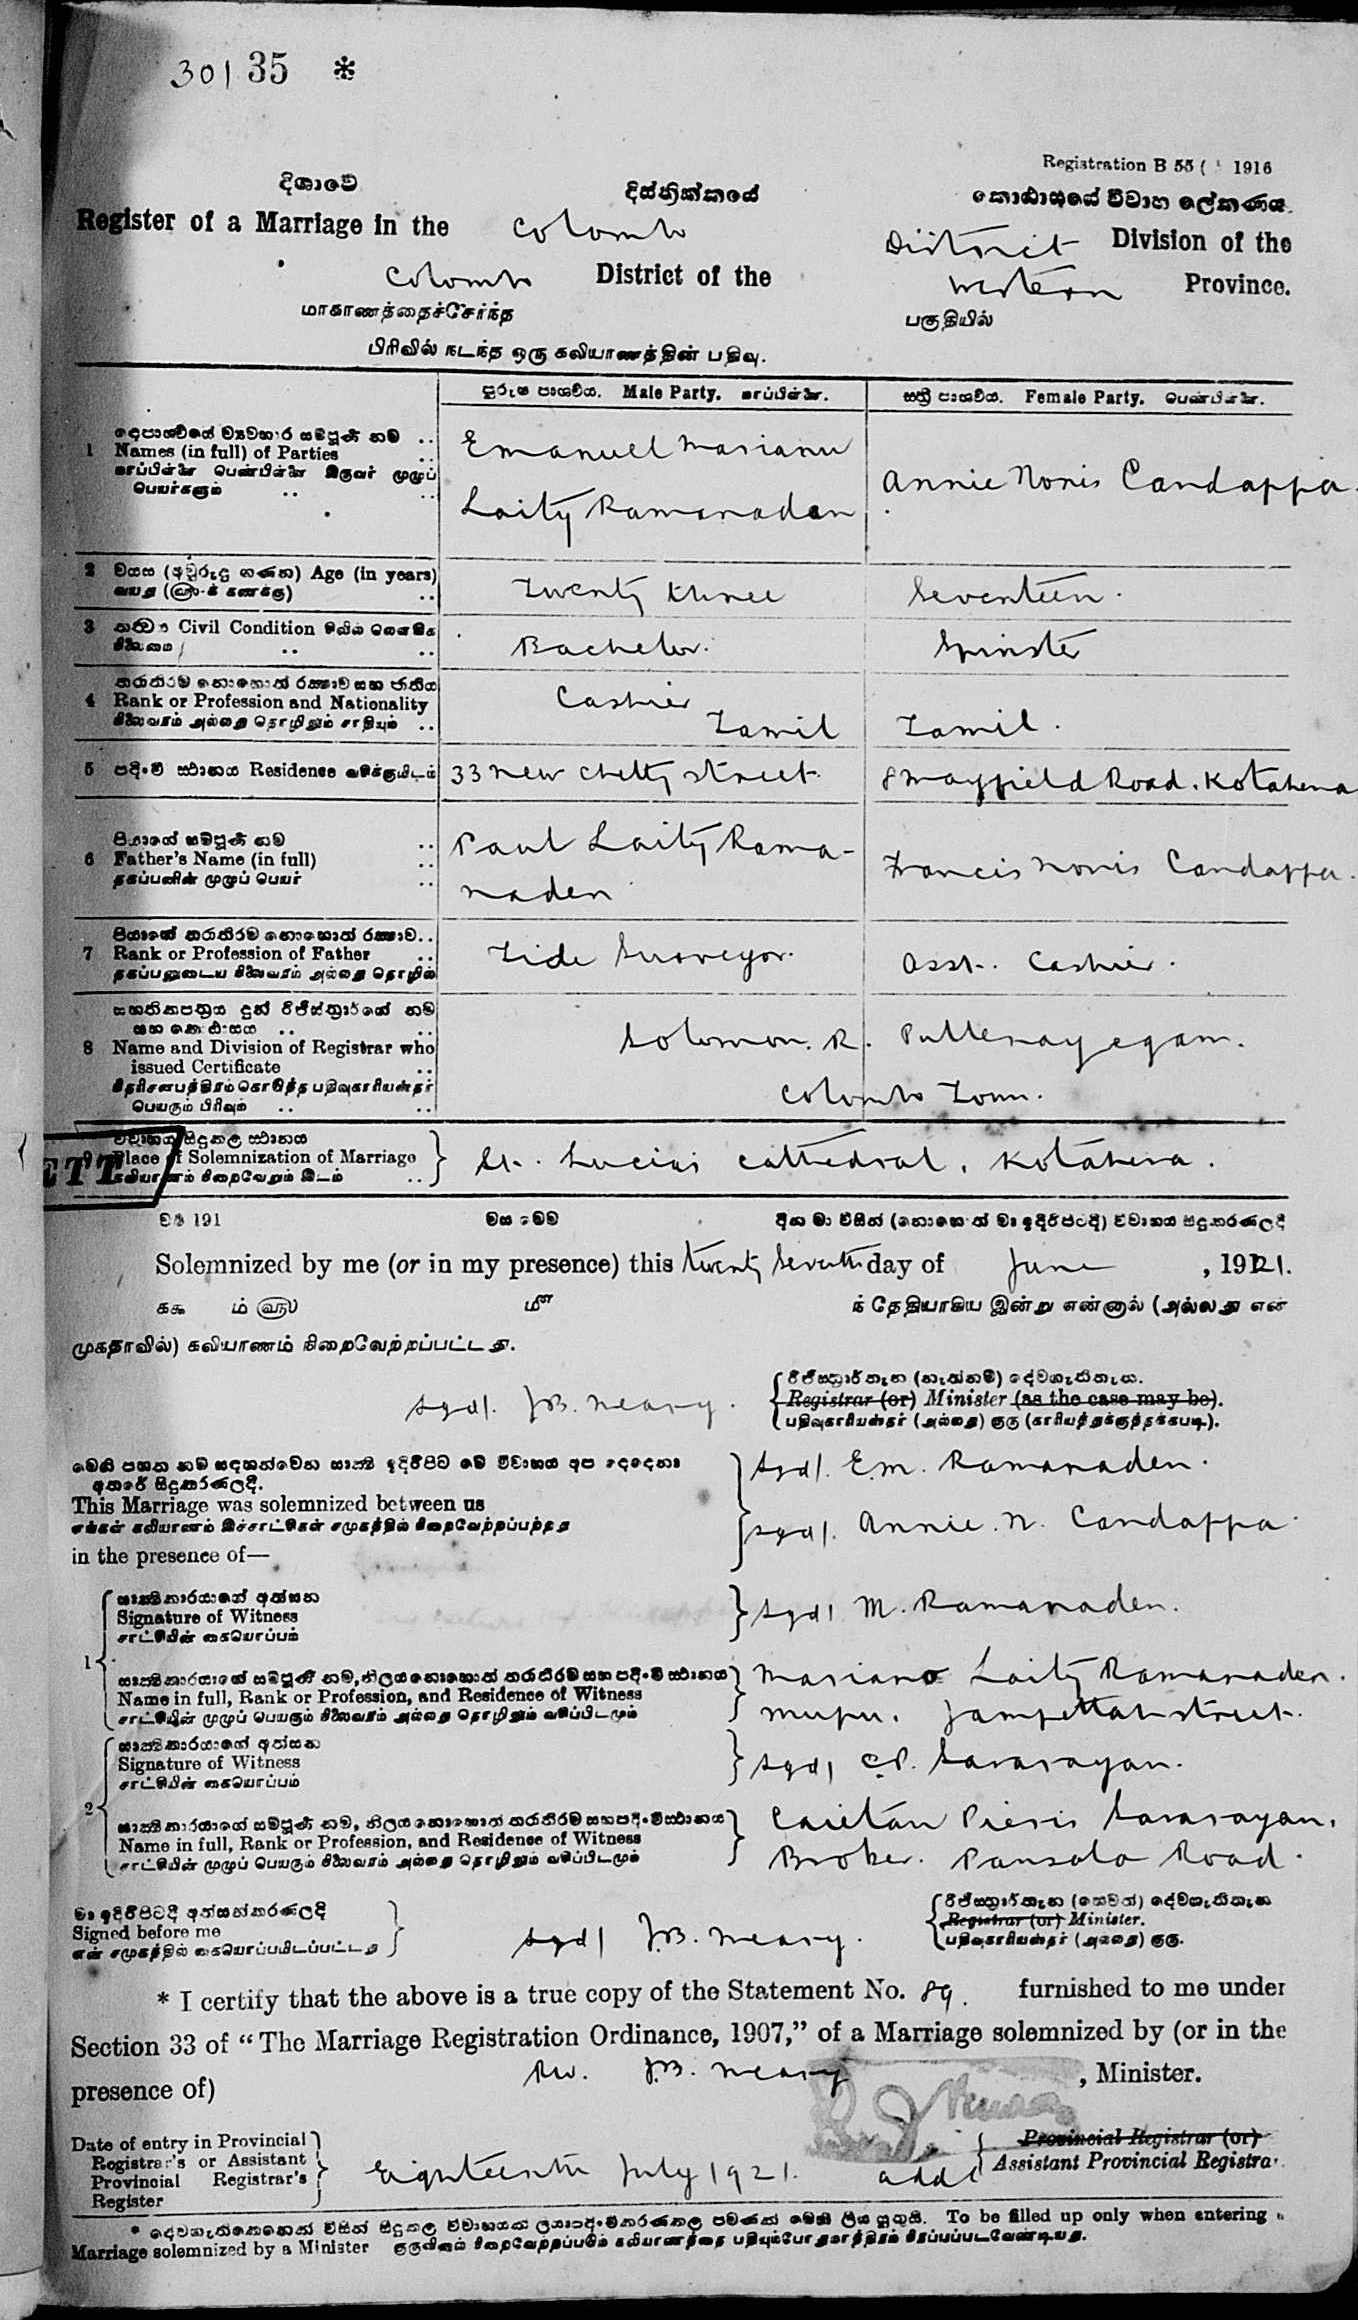 301 35 *
Registration B 55 ( 1916
දිශාවේ දිස්ත්‍රික්කයේ කොඨාශයේ විවාහ ලේකණය.
Register of a Marriage in the Colombo District Division of the
Colombo District of the Western Province.
மாகாணத்தைச்சேர்ந்த பகுதியில்
பிரிவில் நடந்த ஒரு கலியாணத்தின் பதிவு.
පුරුෂ පාශ්වය. Male Party. மாப்பிள்ளை. ස්ත්‍රී පාශ්වය. Female Party. பெண்பிள்ளை.
1 Names (in full) of Parties
மாப்பிள்ளை பெண்பிள்ளை இருவர் முழுப் பெயர்களும்
Emanuel Marianu
Laity Ramanaden
Annie Nonis Candappa.
2 වයස (අවුරුදු ගණන) Age (in years)
Twenty three Seventeen.
3 Civil Condition
Bachelor. Spinster
4 Rank or Profession and Nationality
நிலைவரம் அல்லது தொழிலும் சாதியும்
Cashier
Tamil Tamil.
5 පදිංචි ස්ථානය Residence வசிக்குமிடம்
33 New Chetty Street. 8 Mayfield Road. Kotahena
6 පියාගේ සම්පූර්ණ නම
Father's Name (in full)
தகப்பனின் முழுப் பெயர்
Paul Laity Rama-
naden
Francis Nonis Candappa.
7 Rank or Profession of Father
தகப்பனுடைய நிலைவரம் அல்லது தொழில்
Tide Surveyor. Asst. Cashier.
8 Name and Division of Registrar who
issued Certificate
பெயரும் பிரிவும்
Solomon. R. Pullenayegam.
Colombo Town.
ETT
Place of Solemnization of Marriage
கலியாணம் நிறைவேறும் இடம்
St. Lucias Cathedral, Kotahena.
වර්‍ෂ 191 මස මෙම දින මා විසින් (නොහොත් මා ඉදිරිපිටදී) විවාහය සිදුකරණලදී
Solemnized by me (or in my presence) this twenty seventh day of June , 1921.
ந் தேதியாகிய இன்று என்னால் (அல்லது என்
முகதாவில்) கலியாணம் நிறைவேற்றப்பட்டது.
Sgd/. J.B. Meary.
Registrar (or) Minister (as the case may be).
பதிவுகாரியஸ்தர் (அல்லது) குரு (காரியத்துக்குத்தக்கபடி).
This Marriage was solemnized between us
எங்கள் கலியாணம் இச்சாட்சிகள் சமுகத்தில் நிறைவேற்றப்பற்றது
in the presence of—
Sgd/. E.M. Ramanaden.
Sgd/. Annie. N. Candappa.
1 සාක්‍ෂිකාරයාගේ අත්සන
Signature of Witness
சாட்சியின் கையொப்பம்
Sgd/ M. Ramanaden.
Name in full, Rank or Profession, and Residence of Witness
சாட்சியின் முழுப் பெயரும் நிலைவரம் அல்லது தொழிலும் வசிப்பிடமும்
Mariano Laity Ramanaden.
Mupu. Jampettah Street.
2 සාක්‍ෂිකාරයාගේ අත්සන
Signature of Witness
சாட்சியின் கையொப்பம்
Sgd/ C.P. Savarayan.
Name in full, Rank or Profession, and Residence of Witness
சாட்சியின் முழுப் பெயரும் நிலைவரம் அல்லது தொழிலும் வசிப்பிடமும்
Caietan Pieris Savarayan.
Broker. Pansala Road.
මා ඉදිරිපිටදී අත්සන්කරණලදී
Signed before me
என் சமுகத்தில் கையொப்பமிடப்பட்டது
Sgd/ J.B. Meary.
Registrar (or) Minister.
பதிவுகாரியஸ்தர் (அல்லது) குரு.
* I certify that the above is a true copy of the Statement No. 89. furnished to me under
Section 33 of “The Marriage Registration Ordinance, 1907,” of a Marriage solemnized by (or in the
presence of) Rev. J.B. Meary , Minister.
Date of entry in Provincial
Registrar's or Assistant
Provincial Registrar's
Register
Eighteenth July 1921.
Addl
Provincial Registrar (or)
Assistant Provincial Registrar.
To be filled up only when entering a
Marriage solemnized by a Minister